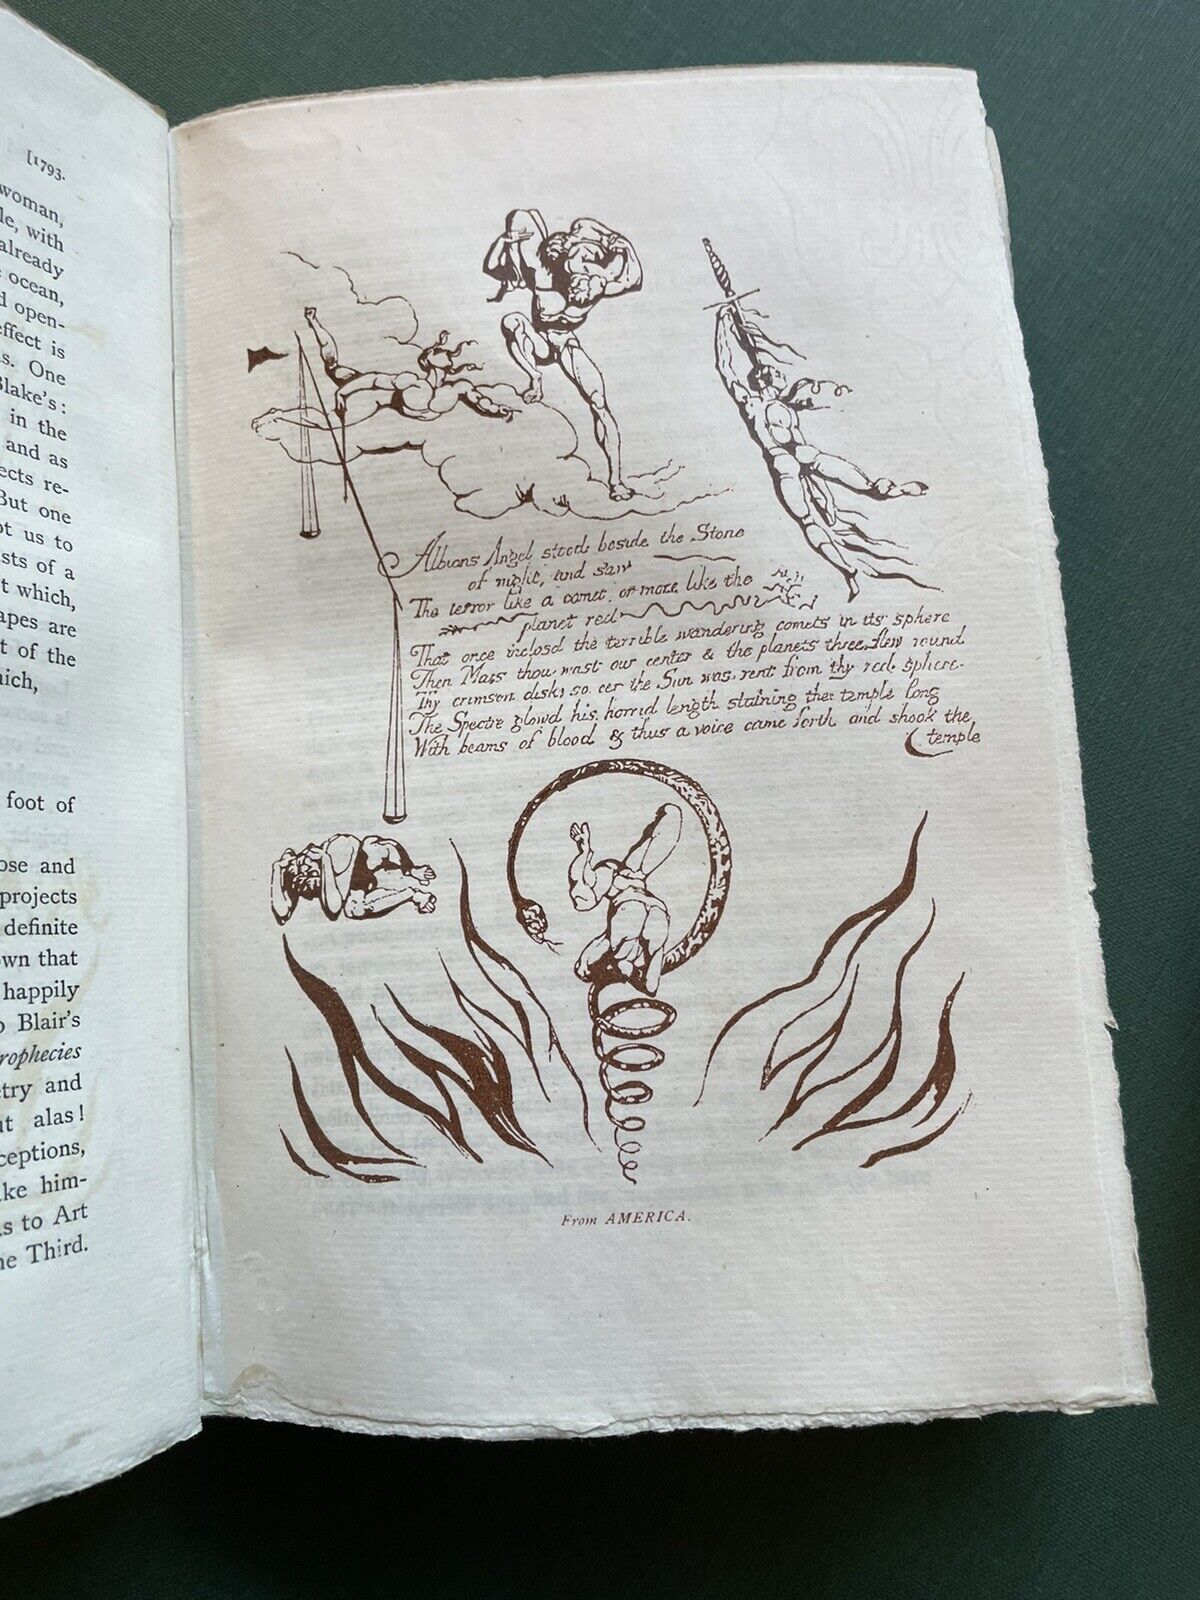 [1793.
woman,
le, with
already
ocean,
d open-
effect is
s. One
Blake's:
in the
and as
ects re-
But one
ot us to
ists of a
t which,
apes are
t of the
hich,
foot of
ose and
projects
definite
own that
happily
o Blair's
rophecies
etry and
ut alas!
ceptions,
ake him-
as to Art
he Third.
Albions Angel stood beside the Stone
of night, and saw
The terror like a comet, or more like the
planet red
That once inclosd the terrible wandering comets in its sphere
Then Mars thou wast our center & the planets three flew round
Thy crimson disk; so eer the Sun was rent from thy red sphere.
The Spectre glowd his horrid length staining the temple long
With beams of blood & thus a voice came forth and shook the
temple
From AMERICA.